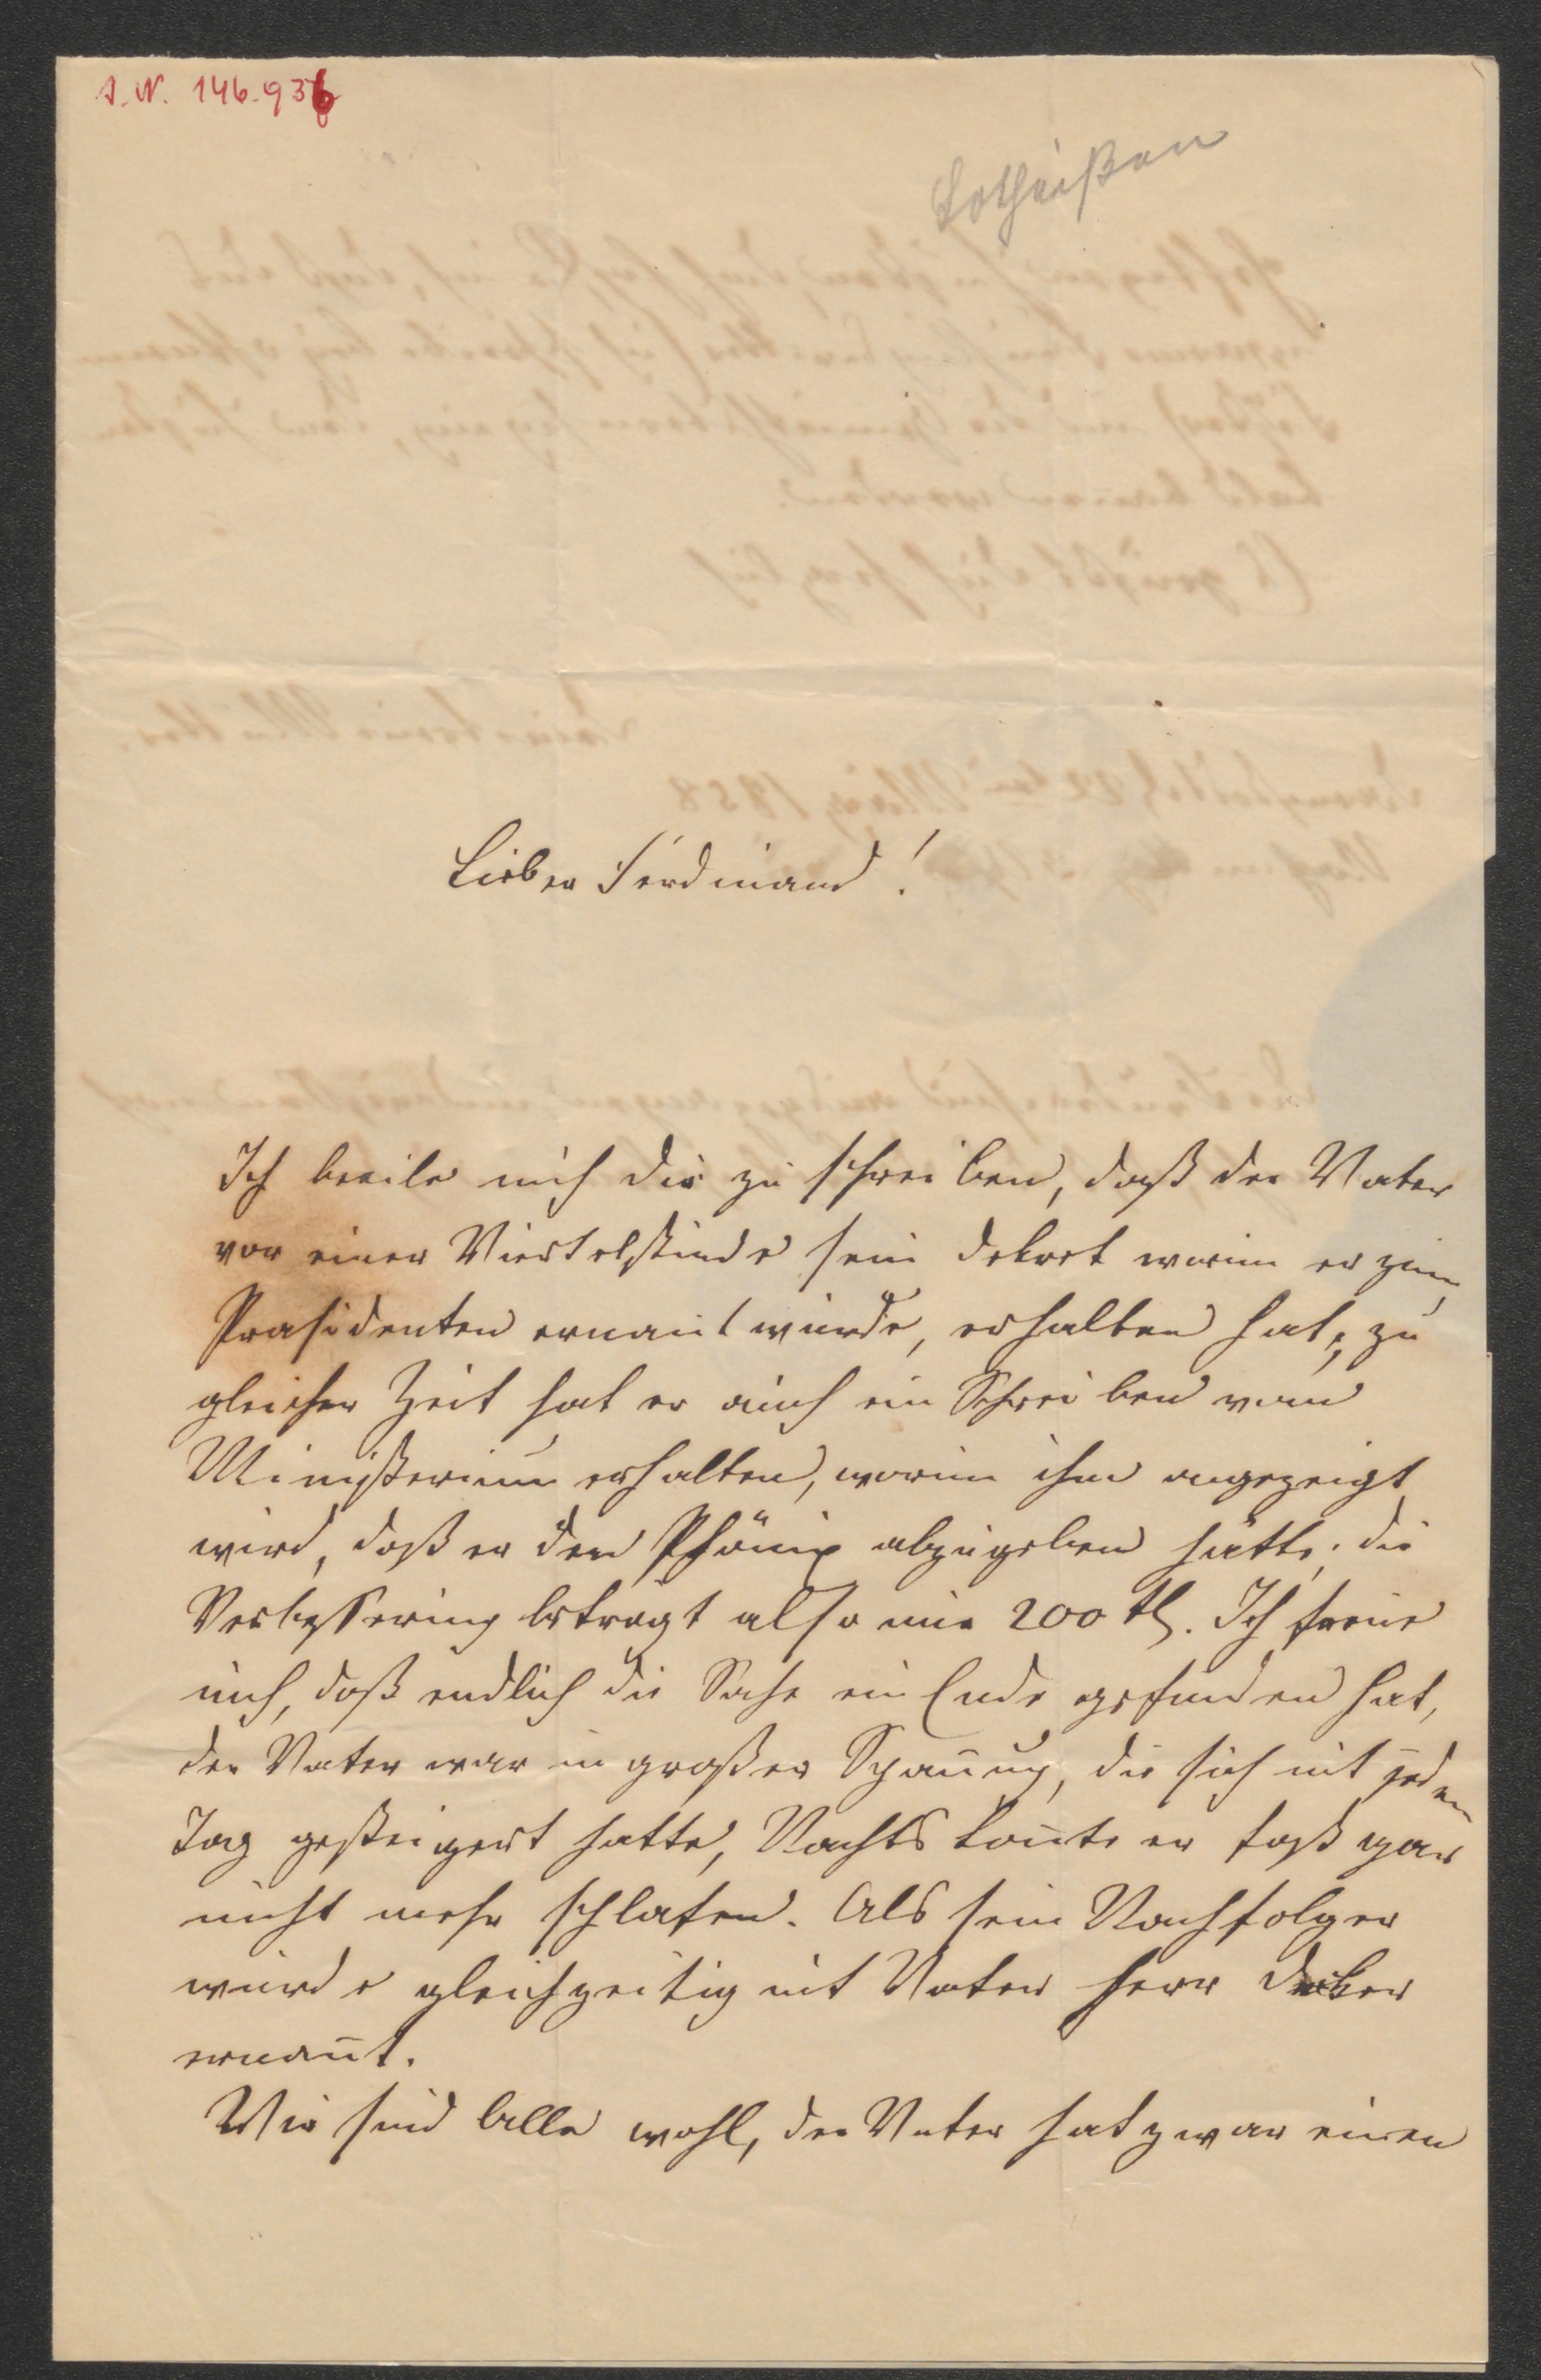 I.N. 146.936
Lotheißen
Lieber Ferdinand!
Ich beeile mich dir zu schreiben, daß der Vater
vor einer Viertelstunde sein Dekret worin er zum
Präsidenten ernannt wurde, erhalten hat, zu
gleicher Zeit hat er auch ein Schreiben vom
Ministerium erhalten, worin ihm angezeigt
wird, daß er den Phönix abzugeben hätte. die
Verbesserung beträgt also nur 200 fl. Ich freue
mich, daß endlich die Sache ein Ende gefunden hat,
der Vater war in großer Span̄ung, die sich mit jedem
Tag gesteigert hatte, Nachts kon̄te er fast gar
nicht mehr schlafen. Als sein Nachfolger
wurde gleichzeitig mit Vater Herr
ernan̄t.
Wir sind Alle wohl, der Vater hat zwar einen